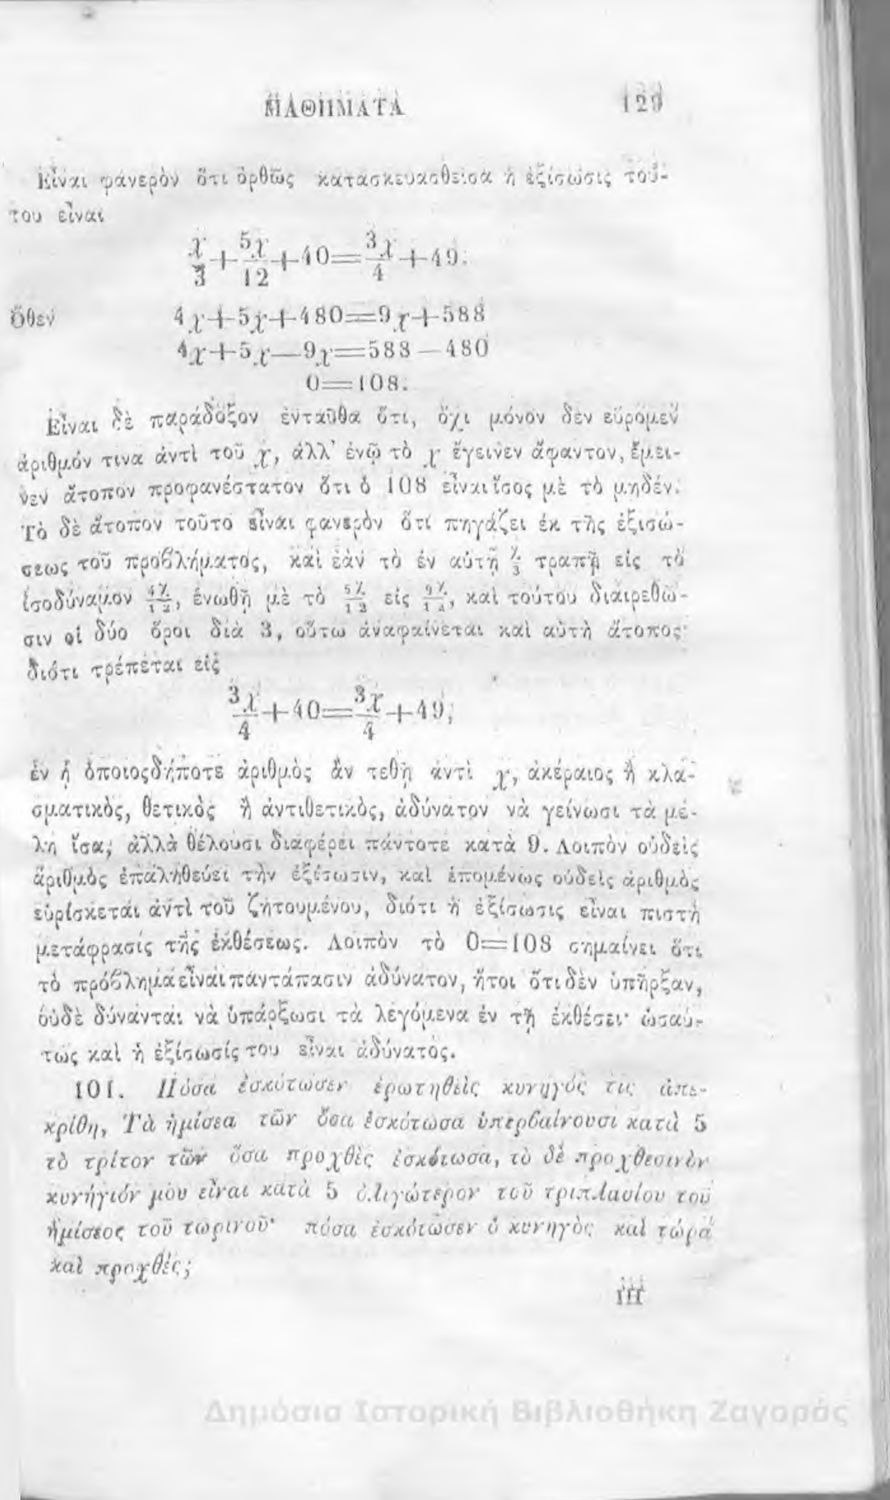 ΜΑΘΗΜΑΤΑ 129
Εἶναι φανερὸν ὅτι ὀρθῶς κατασκευασθεῖσα ἡ ἐξίσωσις τού-
του εἶναι
χ/3+5χ/12+40=3χ/4+49.
ὅθεν 4χ+5χ+480=9χ+588
4χ+5χ—9χ=588—480
0=108.
Εἶναι δὲ παράδοξον ἐνταῦθα ὅτι, ὄχι μόνον δὲν εὕρομεν
ἀριθμόν τινα ἀντὶ τοῦ χ, ἀλλ' ἐνῷ τὸ χ ἔγεινεν ἄφαντον, ἔμει-
νεν ἄτοπον προφανέστατον ὅτι ὁ 108 εἶναι ἴσος μὲ τὸ μηδέν.
Τὸ δὲ ἄτοπον τοῦτο εἶναι φανερὸν ὅτι πηγάζει ἐκ τῆς ἐξισώ-
σεως τοῦ προβλήματος, καὶ ἐὰν τὸ ἐν αὐτῇ χ/3 τραπῇ εἰς τὸ
ἰσοδύναμον 4χ/12, ἑνωθῇ μὲ τὸ 5χ/12 εἰς 9χ/12, καὶ τούτου διαιρεθῶ-
σιν οἱ δύο ὅροι διὰ 3, οὕτω ἀναφαίνεται καὶ αὐτὴ ἄτοπος·
διότι τρέπεται εἰς
3χ/4+40=3χ/4+49,
ἐν ᾗ ὁποιοςδήποτε ἀριθμὸς ἂν τεθῇ ἀντὶ χ, ἀκέραιος ἢ κλα-
σματικὸς, θετικὸς ἢ ἀντιθετικὸς, ἀδύνατον νὰ γείνωσι τὰ μέ-
λη ἴσα, ἀλλὰ θέλουσι διαφέρει πάντοτε κατὰ 9. Λοιπὸν οὐδεὶς
ἀριθμὸς ἐπαληθεύει τὴν ἐξίσωσιν, καὶ ἑπομένως οὐδεὶς ἀριθμὸς
εὑρίσκεται ἀντὶ τοῦ ζητουμένου, διότι ἡ ἐξίσωσις εἶναι πιστὴ
μετάφρασις τῆς ἐκθέσεως. Λοιπὸν τὸ 0=108 σημαίνει ὅτι
τὸ πρόβλημα εἶναι παντάπασιν ἀδύνατον, ἤτοι ὅτι δὲν ὑπῆρξαν,
οὐδὲ δύνανται νὰ ὑπάρξωσι τὰ λεγόμενα ἐν τῇ ἐκθέσει· ὡσαύ-
τως καὶ ἡ ἐξίσωσίς του εἶναι ἀδύνατος.
101. Πόσα ἐσκότωσεν ἐρωτηθεὶς κυνηγός τις ἀπε-
κρίθη, Τὰ ἡμίσεα τῶν ὅσα ἐσκότωσα ὑπερβαίνουσι κατὰ 5
τὸ τρίτον τῶν ὅσα προχθὲς ἐσκότωσα, τὸ δὲ προχθεσινὸν
κυνήγιόν μου εἶναι κατὰ 5 ὀλιγώτερον τοῦ τριπλασίου τοῦ
ἡμίσεος τοῦ τωρινοῦ· πόσα ἐσκότωσεν ὁ κυνηγὸς καὶ τώρα
καὶ προχθές;
Δημόσια Ιστορική Βιβλιοθήκη Ζαγοράς